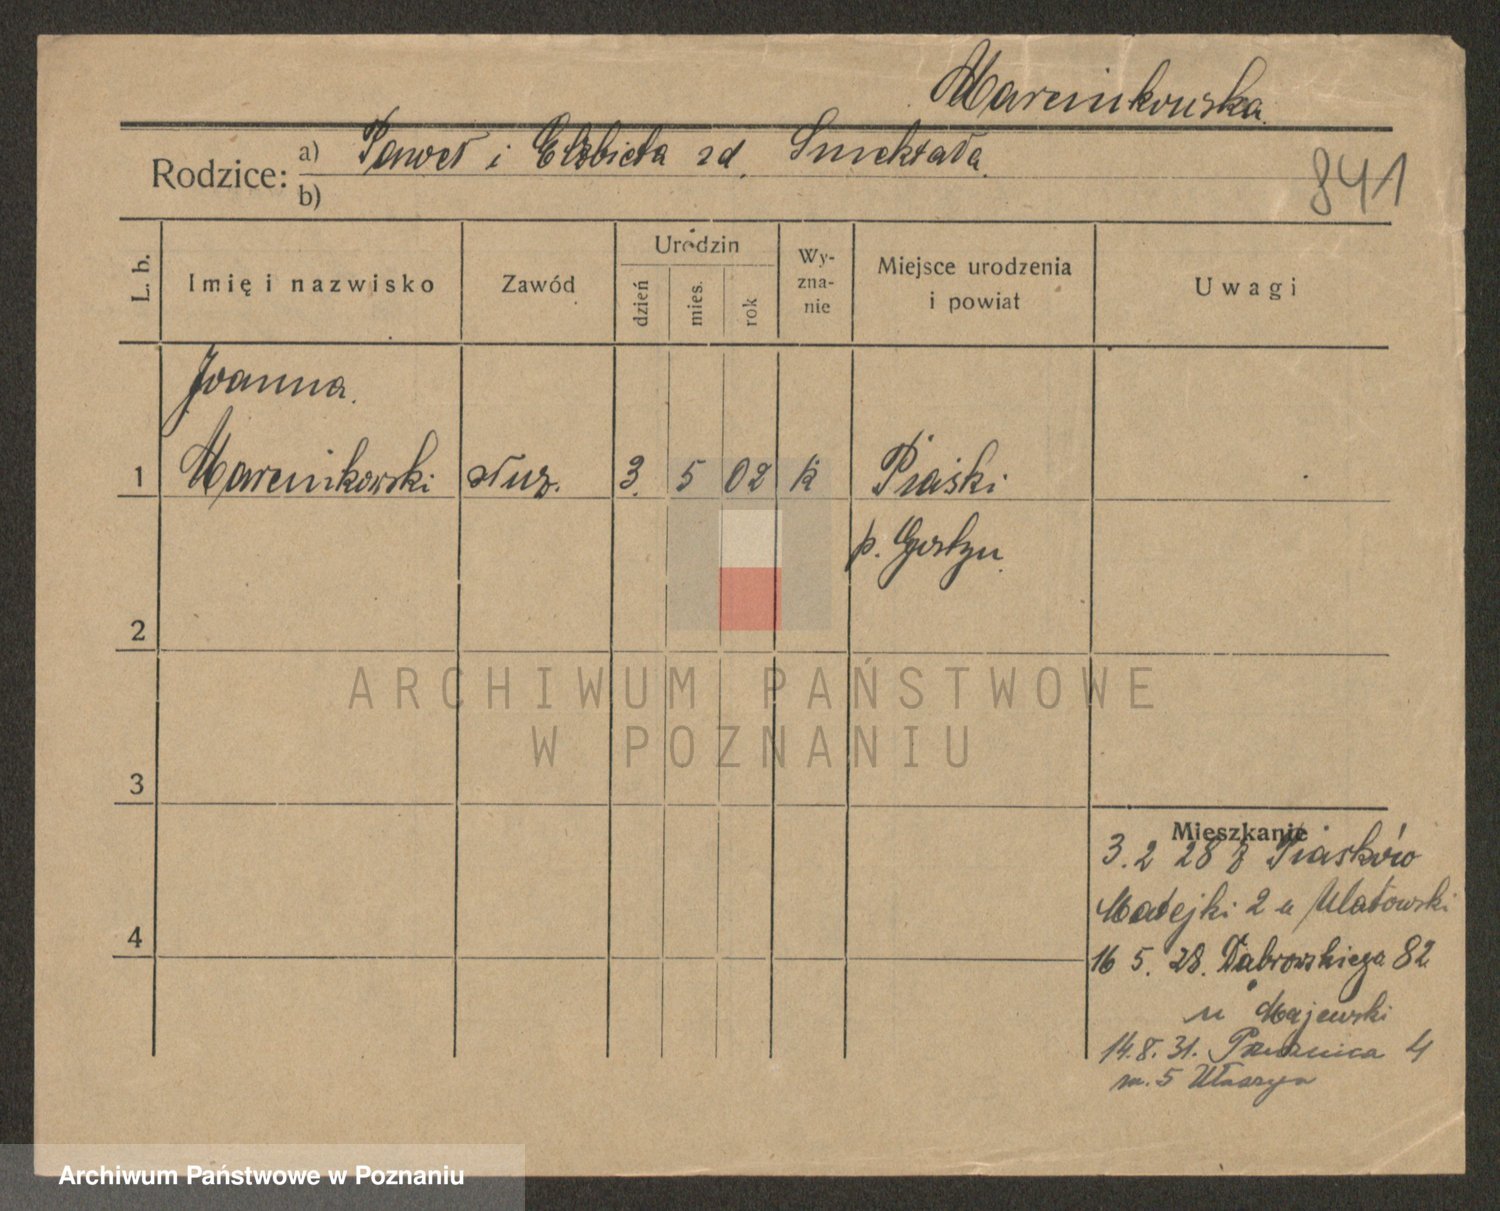 Marcinkowska
Rodzice: a) Paweł i Elżbieta zd. Smektała
b)
841
L. b. Imię i nazwisko Zawód Urodzin dzień mies. rok Wyznanie Miejsce urodzenia i powiat Uwagi
Joanna
1 Marcinkowski służ. 3. 5 02 k Piaski
p. Gostyń
2
ARCHIWUM PAŃSTWOWE
W POZNANIU
3
Mieszkanie
3.2 28 z Piasków
Matejki 2 u Ulatowski
4
16 5. 28. Dąbrowskiego 82
u Majewski
14.8.31. 4
m. 5
Archiwum Państwowe w Poznaniu